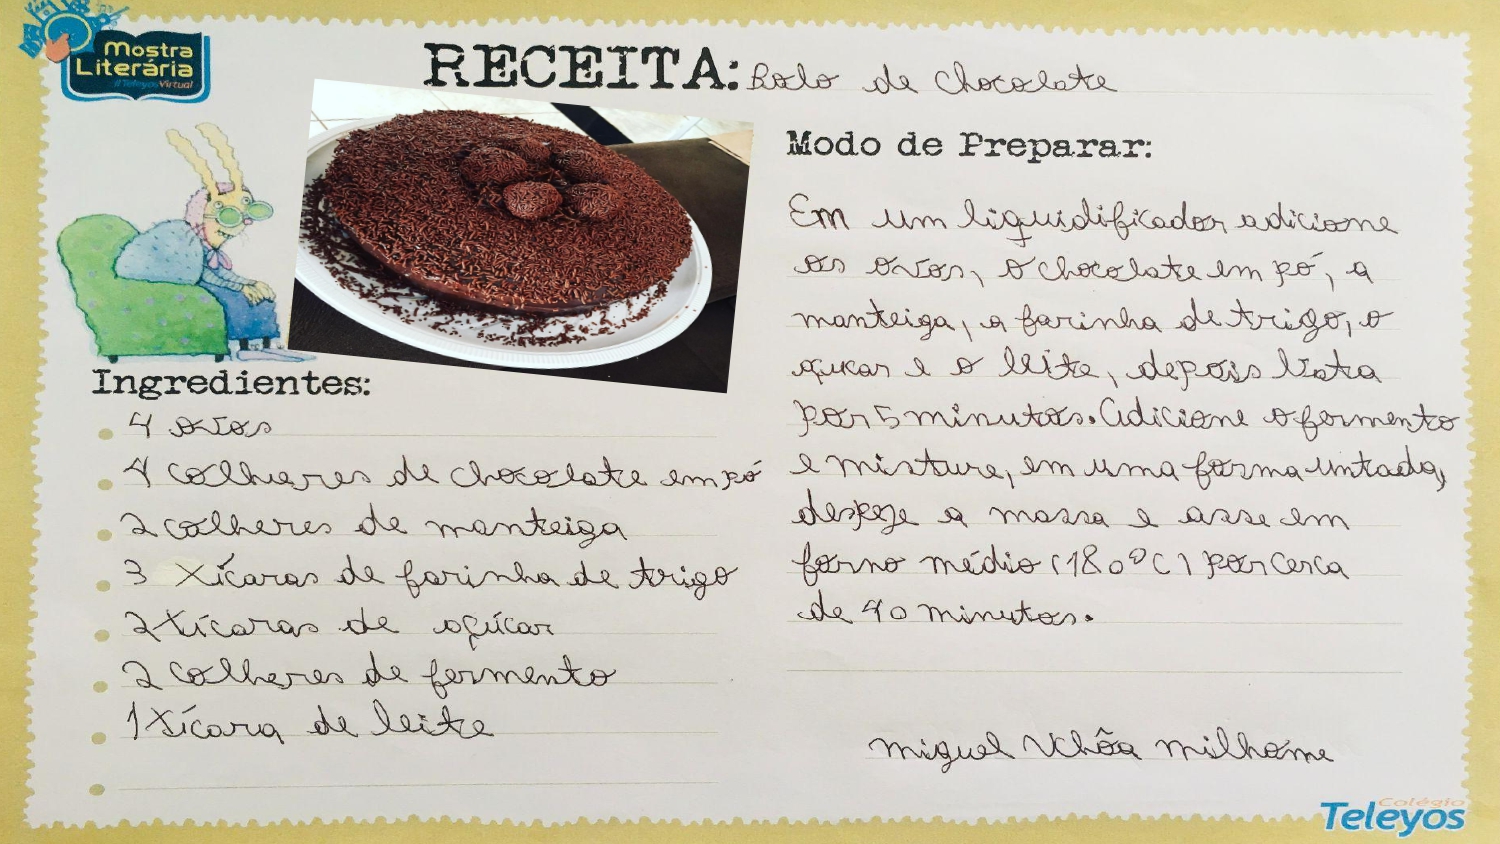 Mostra
Literária
#TeleyosVirtual
RECEITA: Bolo de chocolate
Ingredientes:
4 ovos
4 colheres de chocolate em pó
2 colheres de manteiga
3 xícaras de farinha de trigo
2 xícaras de açúcar
2 colheres de fermento
1 xícara de leite
Modo de Preparar:
Em um liquidificador adicione
os ovos, o chocolate em pó, a
manteiga, a farinha de trigo, o
açucar e o leite, depois bata
por 5 minutos. Adicione o fermento
e misture, em uma forma untada,
despeje a massa e asse em
forno médio (180ºC) por cerca
de 40 minutos.
Miguel Uchôa Milhome
Colégio
Teleyos